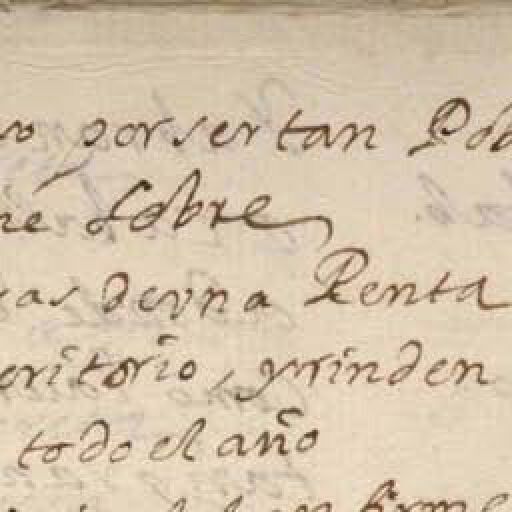 por ser tan Pob
né sobre
cas de vna Renta
oritório, y rinden
todo el año